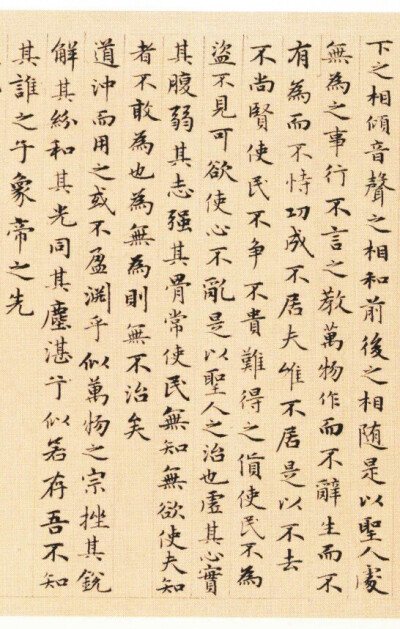 下之相傾音聲之相和前後之相随是以聖人處
無為之事行不言之教萬物作而不辭生而不
有為而不恃功成不居夫唯不居是以不去
不尚賢使民不争不貴難得之貨使民不為
盜不見可欲使心不亂是以聖人之治也虛其心實
其腹弱其志强其骨常使民無知無欲使夫知
者不敢為也為無為則無不治矣
道沖而用之或不盈淵乎似萬物之宗挫其銳
解其紛和其光同其塵湛乎似若存吾不知
其誰之子象帝之先